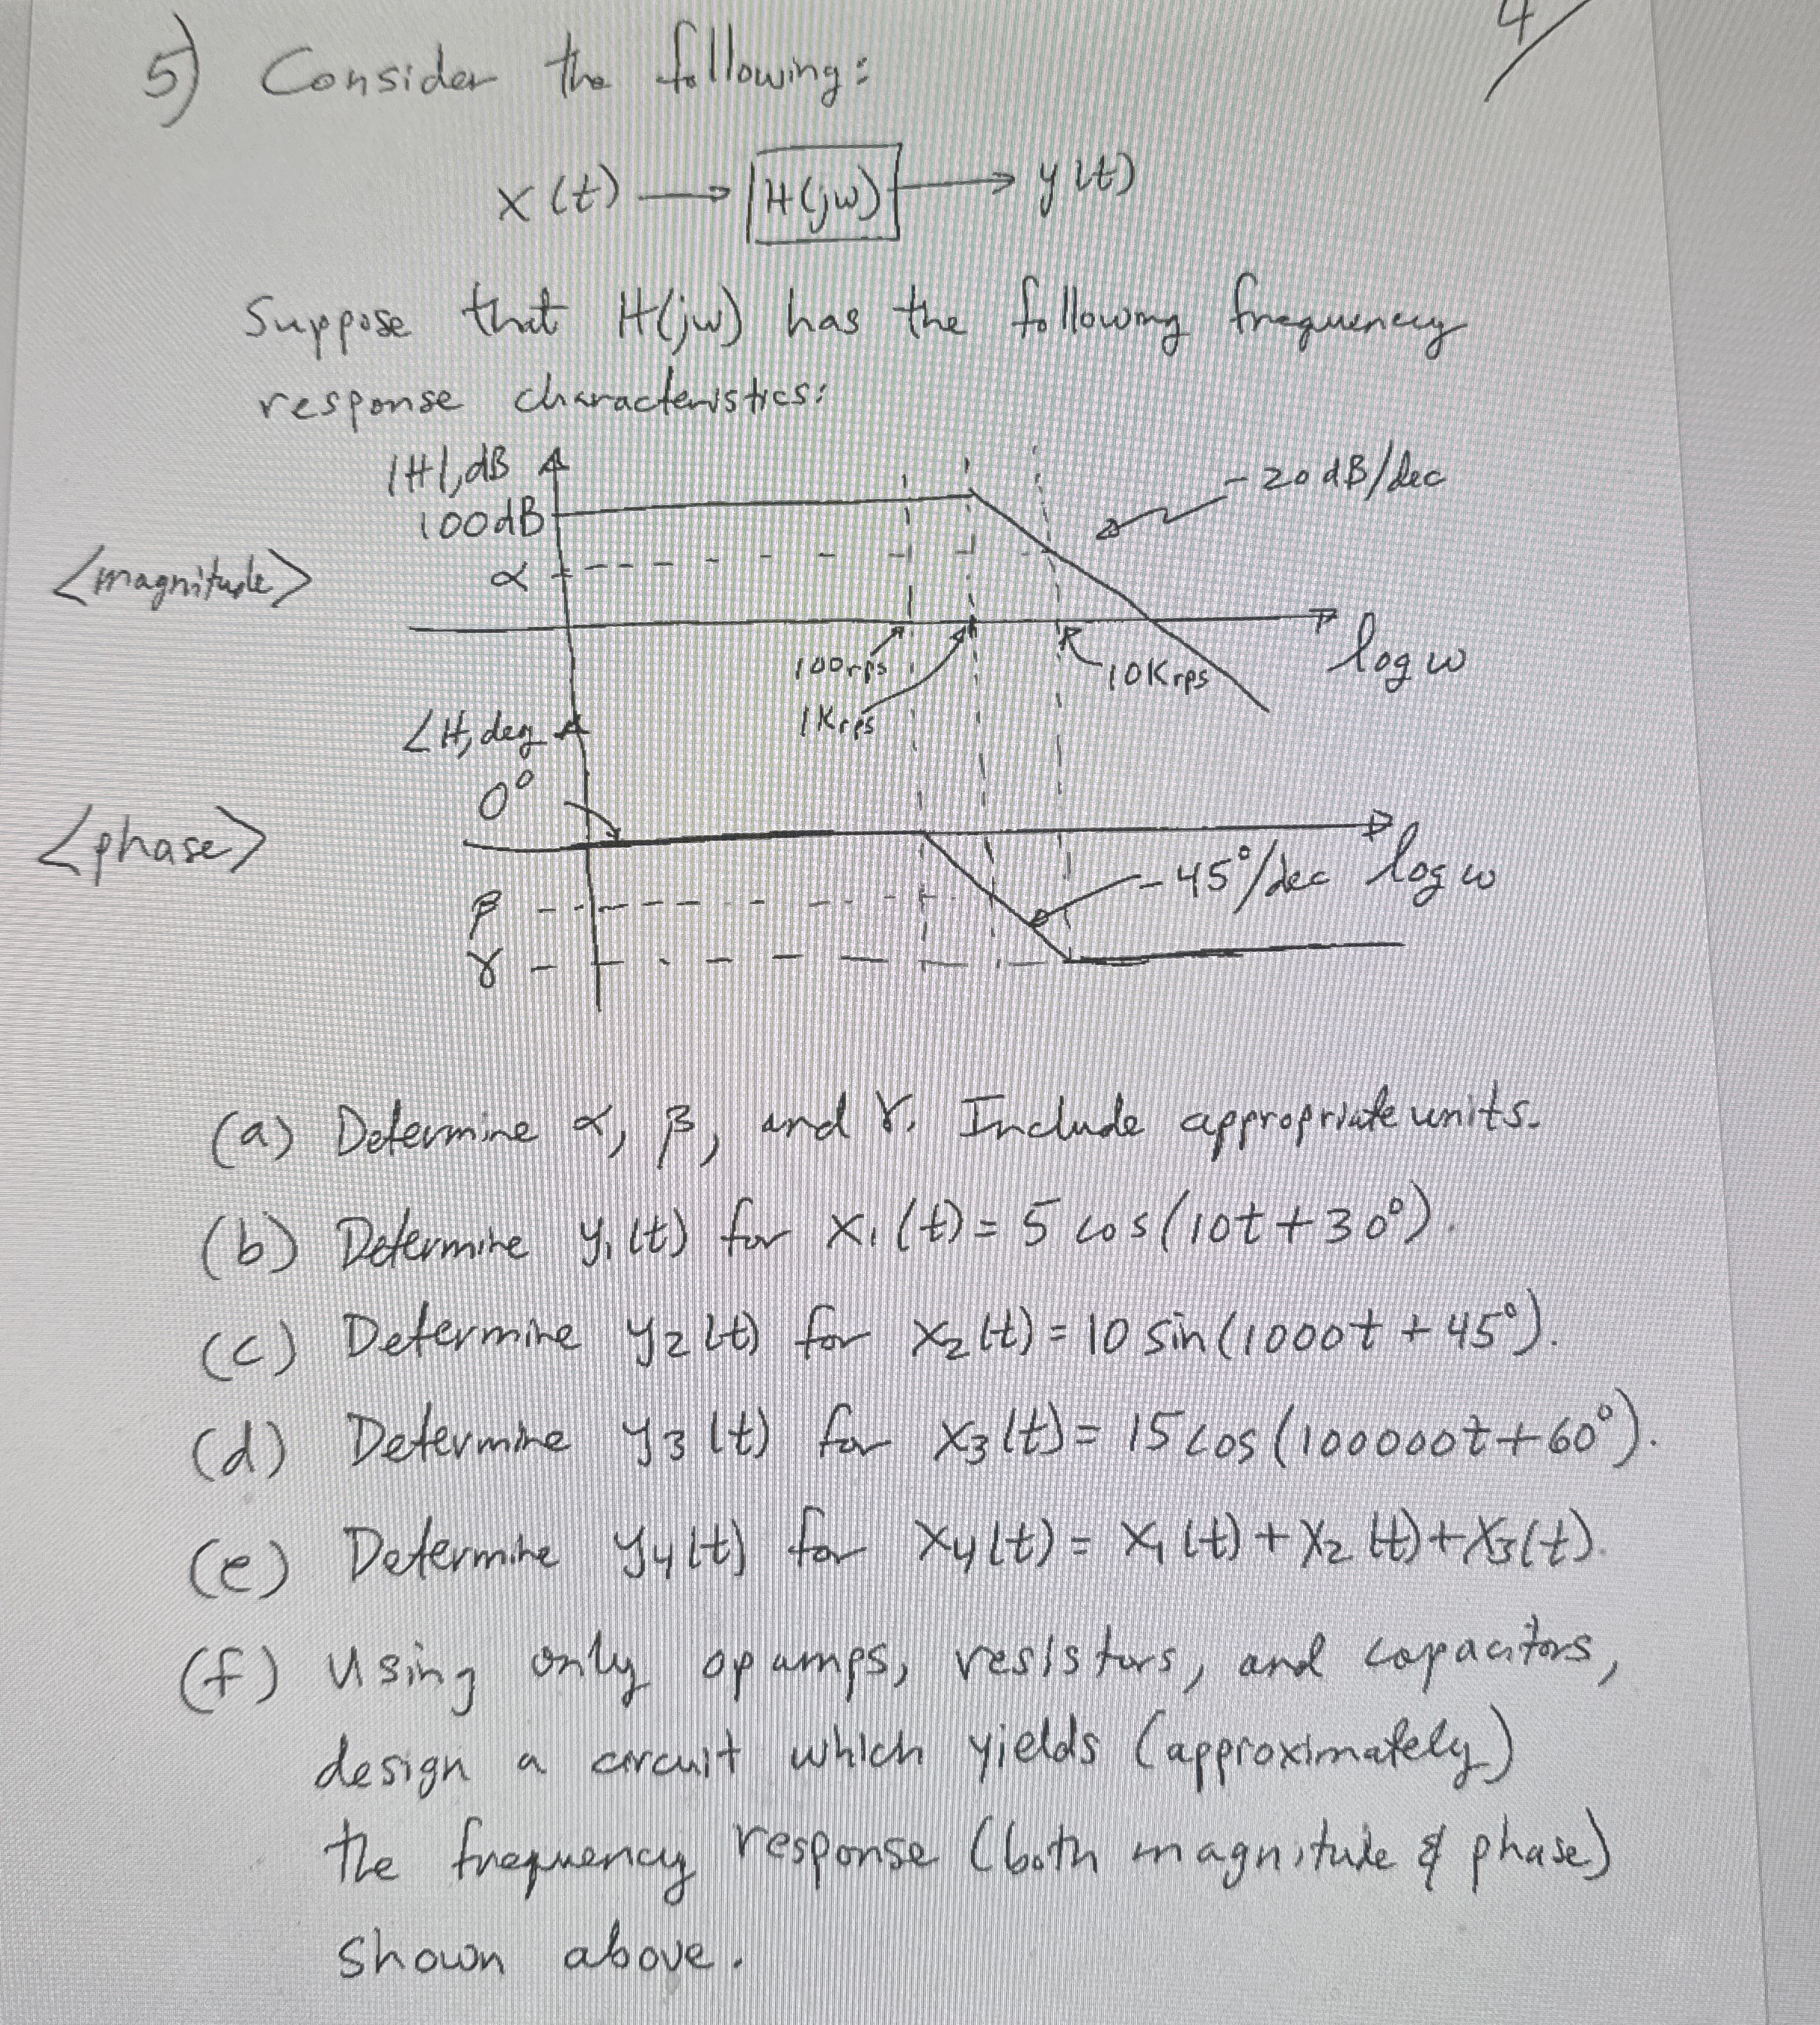 4
5) Consider the following:
x(t) → H(jw) → y(t)
Suppose that H(jw) has the following frequency
response characteristics:
|H|, dB
-20 dB/dec
100dB
<magnitude>
α
log w
100rps
10Krps
1Krps
∠H, deg
0°
<phase>
-45°/dec
log w
β
γ
(a) Determine α, β, and γ. Include appropriate units.
(b) Determine y₁(t) for x₁(t) = 5 cos(10t+30°).
(c) Determine y₂(t) for x₂(t) = 10 sin(1000t + 45°).
(d) Determine y₃(t) for x₃(t) = 15 cos(100000t+60°).
(e) Determine y₄(t) for x₄(t) = x₁(t) + x₂(t) + x₃(t).
(f) Using only opamps, resistors, and capacitors,
design a circuit which yields (approximately)
the frequency response (both magnitude & phase)
shown above.